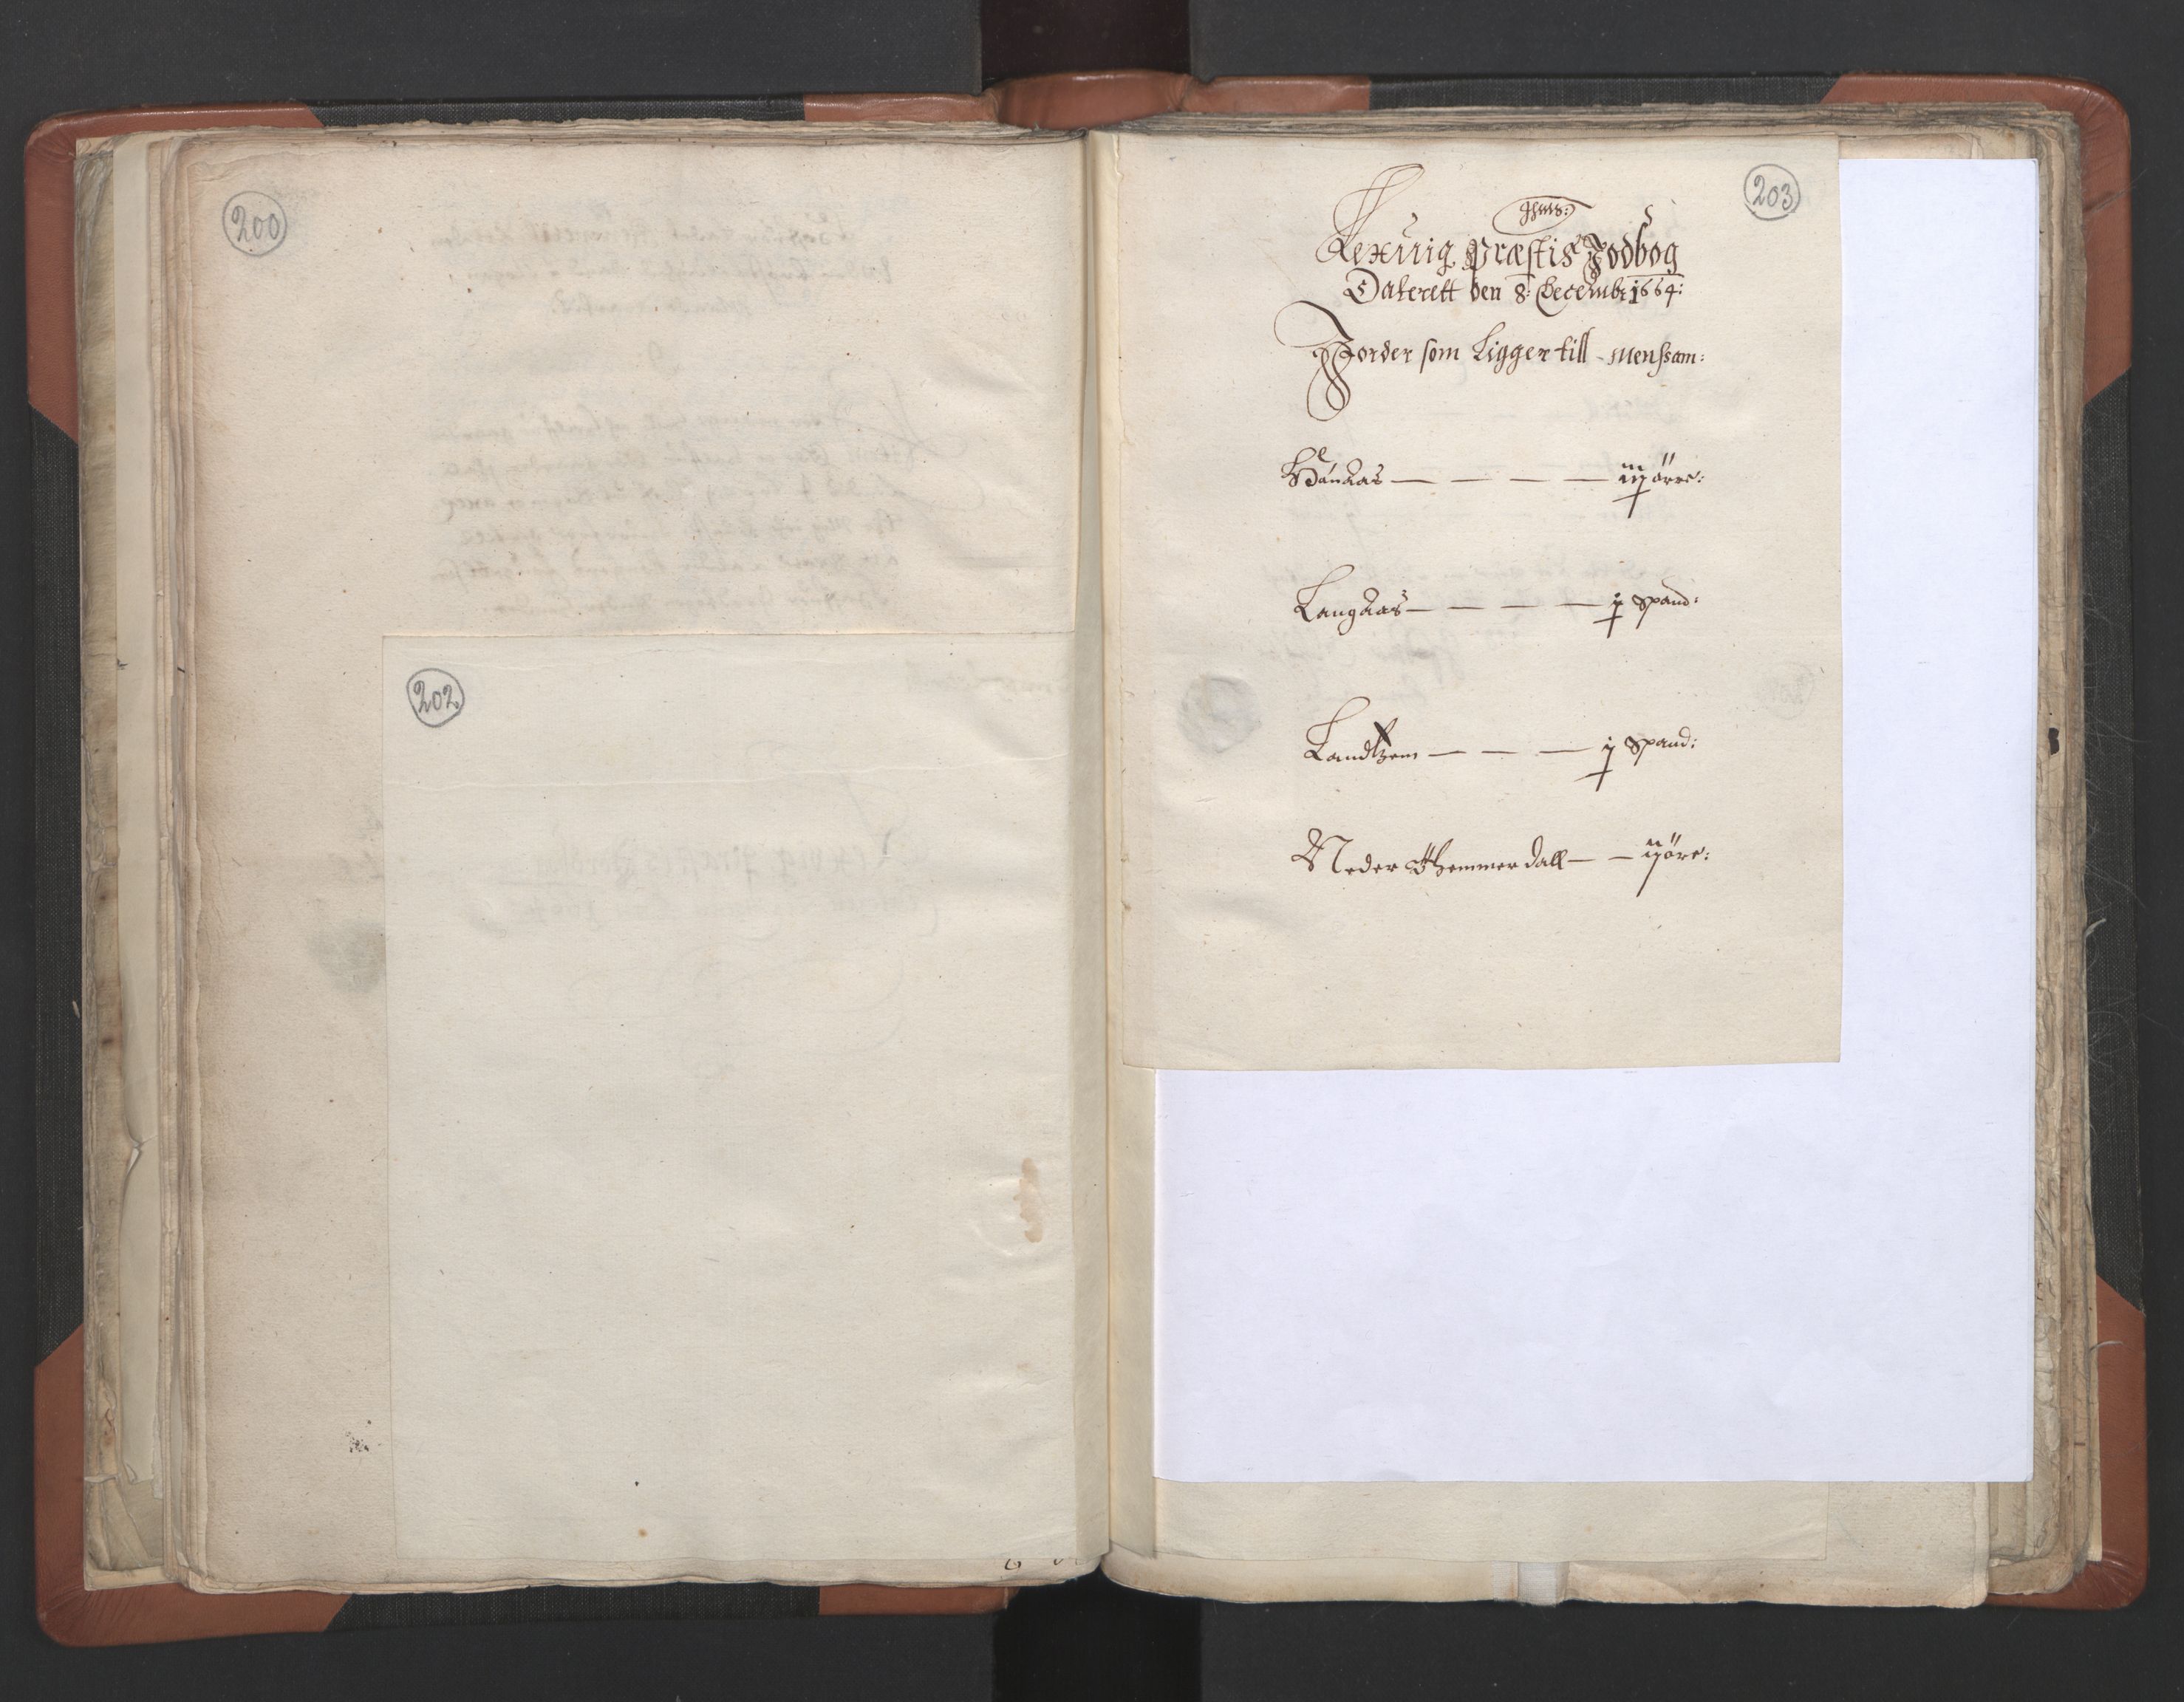 200
202
203
Lexuig præstis Jodbog
Daterett den 8: Decembr 1664:
Jorder som Ligger till Menssam:
iij örre:
Langaas — — — — j Spand:
Landtzem — — — j Spand:
Neder Themmerdall — — ij öre: